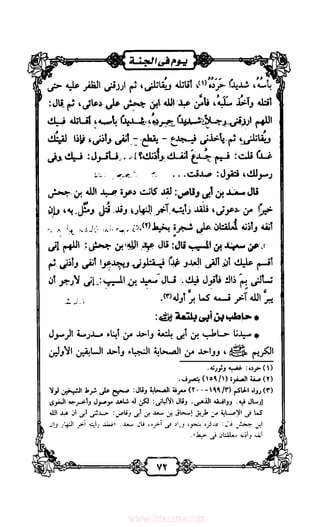 يوم في الجنة
بأسُه، شديدًا حَرَدُه(١) أقاتله ويُقاتلني، ثم ارزقني الظفر عليه حتى
أقتله وآخُذ سَلَبَه، فأمَّن عبد الله ابن جحش على دعائي، ثم قال:
اللهم ارزقني رجلاً شديدًا حرده، شديدًا بأسه، أقاتله فيك
ويقاتلني، ثم يأخذني فيجدع - يقطع - أنفي وأذني، فإذا لقيتُك
غدًا قلتَ: فيم جُدع أنفك وأذنك؟ فأقول: فيك وفي
رسولك، فتقول: صدقت...
قال سعد بن أبي وقاص: لقد كانت دعوة عبد الله بن جحش
خيرًا من دعوتي، فلقد رأيته آخر النهار، وقد قُتل ومُثِّل به، وإن
أنفه وأذنه لمُعلقتان على شجرة بخيط(٢).
عن سعيد بن المسيب قال: قال عبد الله بن جحش: اللهم إني
أقسم عليك أن ألقى العدو غدًا فيقتلوني ويجدعوا أنفي وأذني ثم
تسألني بم ذاك فأقول فيك. قال سعيد بن المسيب: إني لأرجو أن
يبر الله آخر قسمه كما برَّ أوله(٣).
* حاطب بن أبي بلتعة ﷺ:
* سيدنا حاطب بن أبي بلتعة واحد من أبناء مدرسة الرسول
الكريم ﷺ، وواحد من الصحابة النجباء وأحد السابقين الأولين
(١) حرده: غضبه وثورته.
(٢) صفة الصفوة (١/ ١٥٩) بتصرف.
(٣) رواه الحاكم (٣/ ١٩٩-٢٠٠) معرفة الصحابة وقال: صحيح على شرط الشيخين لولا
إرسال فيه. ووافقه الذهبي. وقال الألباني: لكن له شاهد موصول وأخرجه البغوي
كما في الإصابة من طريق إسحاق بن سعد بن أبي وقاص: حدثني أبي أن عبد الله
ابن جحش قال: فذكره بنحوه وزاد في آخره، قال سعد: «فلقد رأيته آخر النهار وإن
أنفه وأذنه معلقتان في خيط».
٧٢
www.ibtesama.com